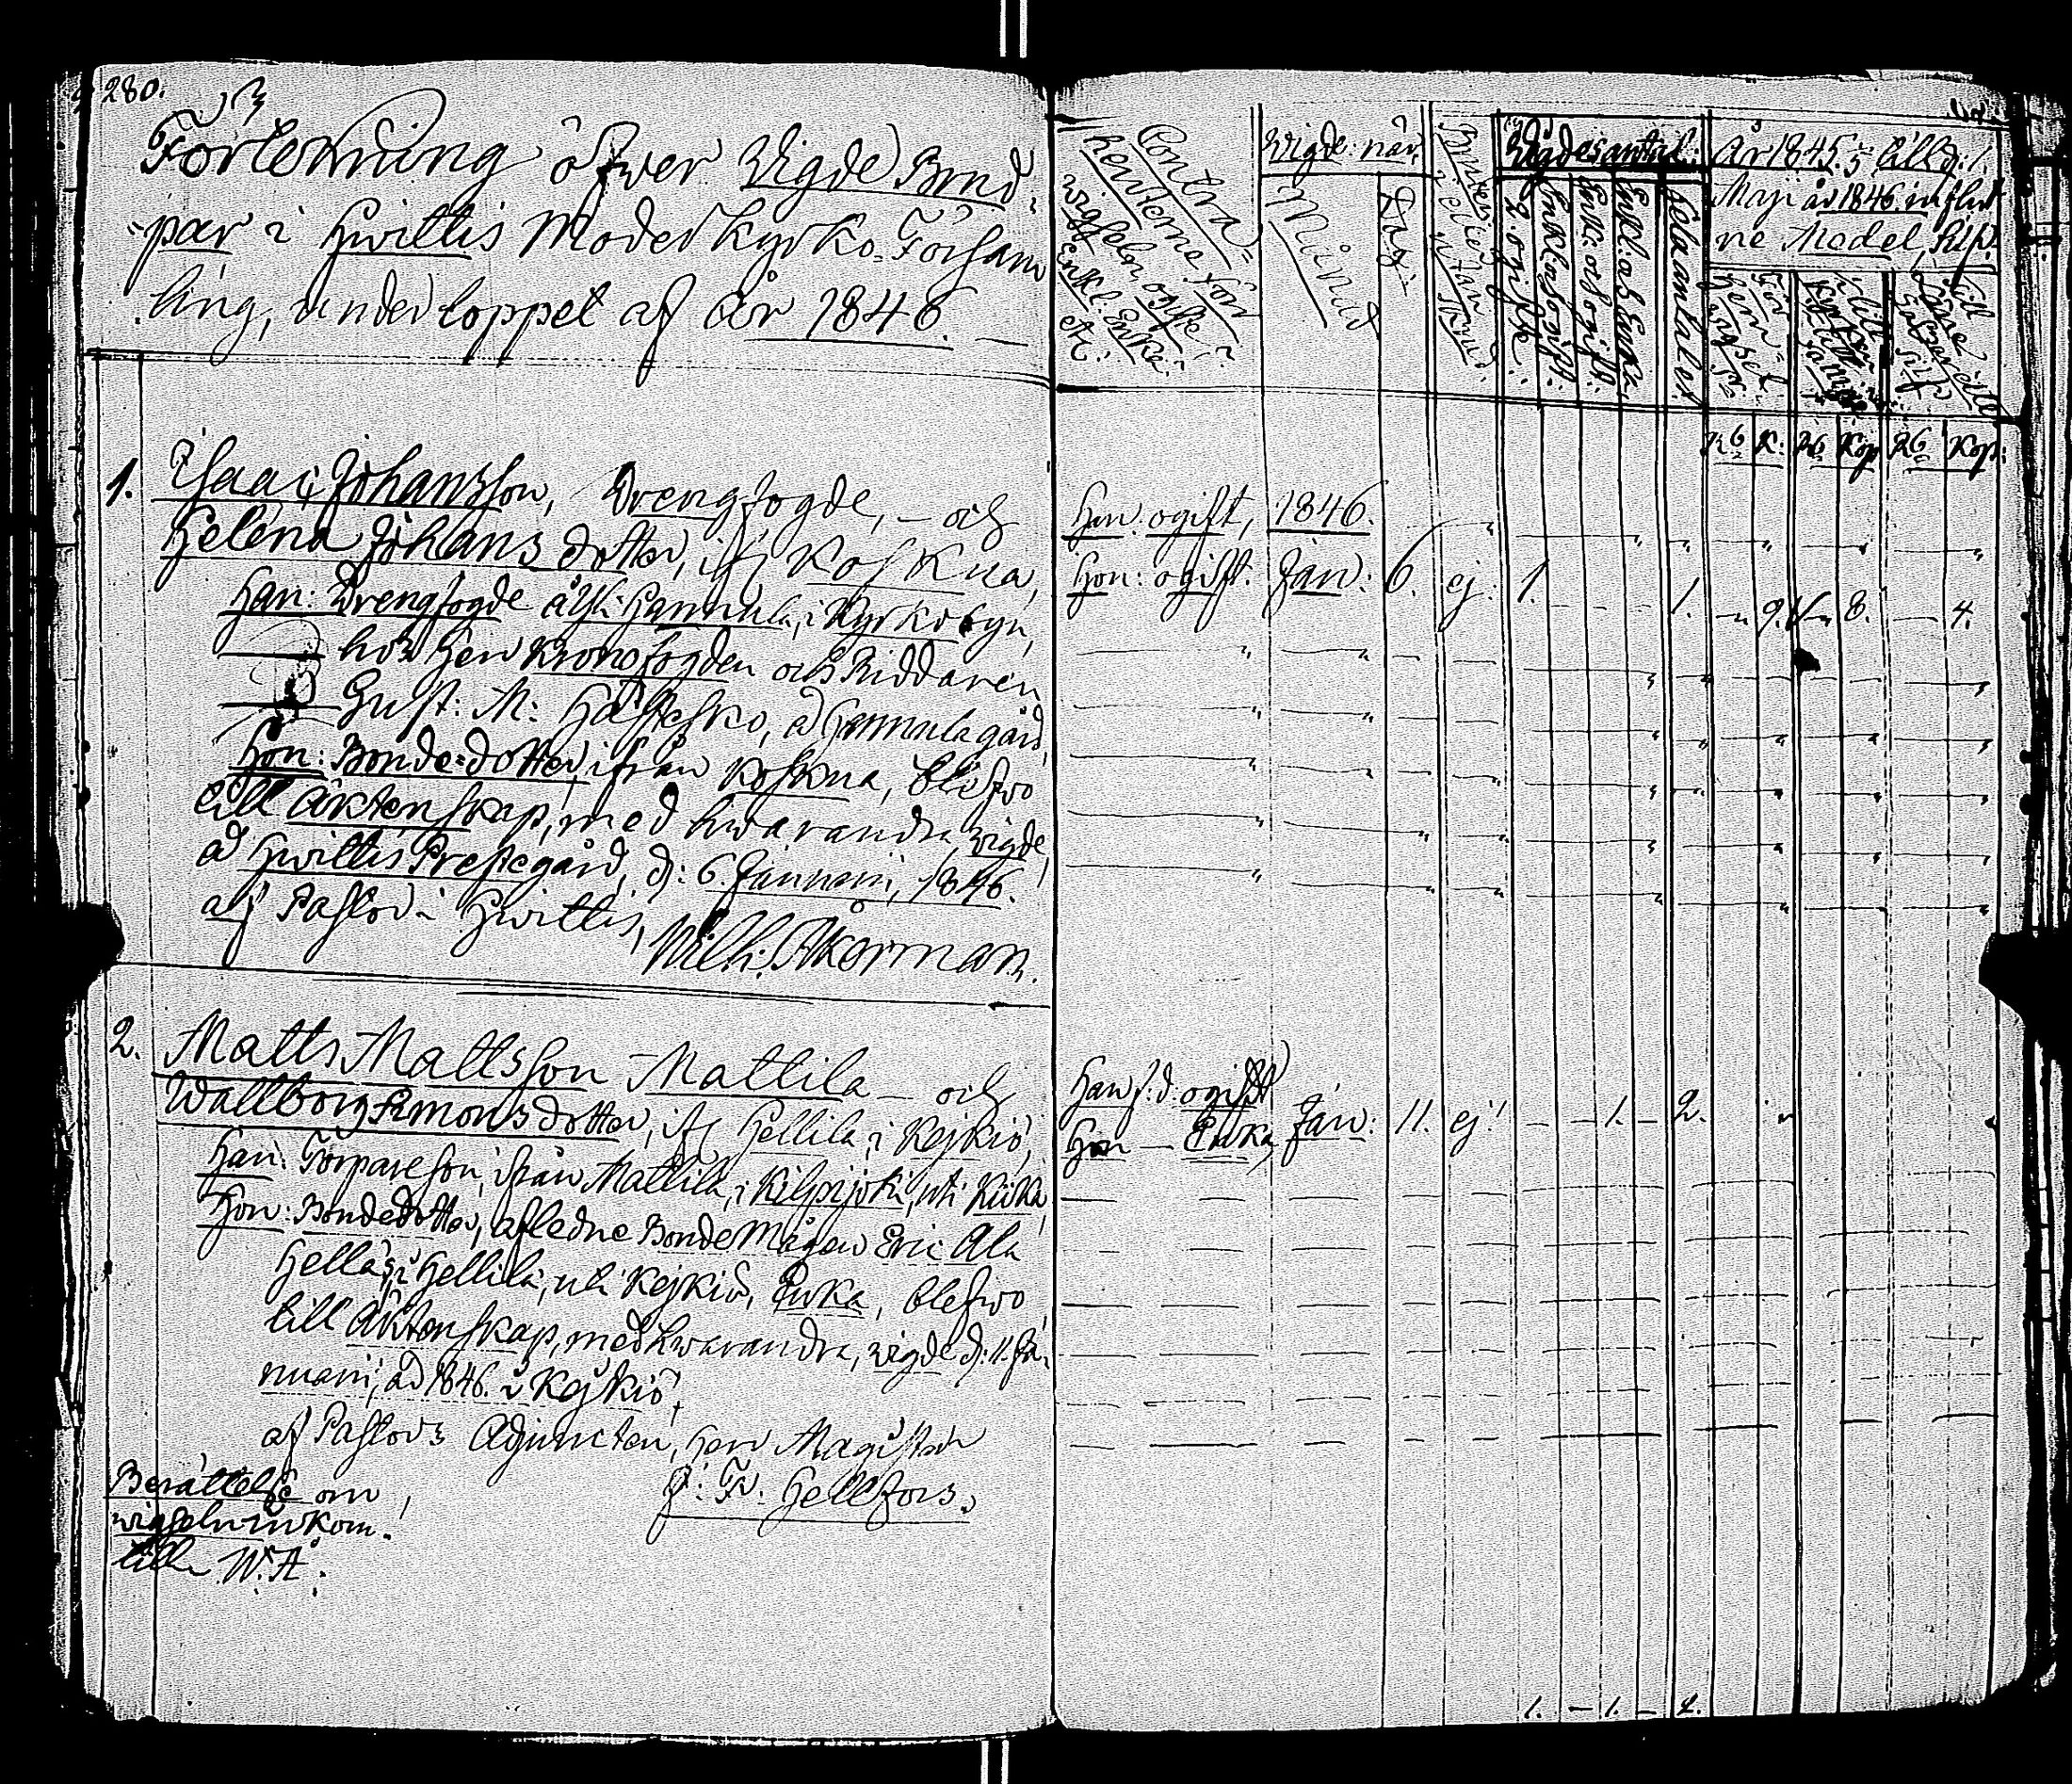 280.
Förteckning öfver Wigde Brud-
par i Hwittis Moderkyrko-Försam
ling, under loppet af år 1846.
1. Isaac Johansson, Drengfogde, — och
Helena Johans dotter, ifr Koskua,
Han: Drengfogde å Hannula, i Kyrkobyn,
hos Herr Kronofogden och Riddaren
Gust: M: Hästesko, å Hannula gård,
Hon: Bonde-dotter, ifrån Koskua, blefvo
till Äktenskap, med hwarandra, wigde,
å Hwittis Prestegård, d: 6. Januarii, 1846.
af Pastor i Hwittis,
Wilh: Åkerman.
2. Matts Mattsson Mattila — och
Wallborg Simonsdotter, ifr Hellilä, i Kejkiö,
Han: Torpareson, ifrån Mattila, i Kilpijoki, uti Kiukä,
Hon: Bondedotter, afledne BondeMågen Eric Ala
Hellä, i Hellilä, uti Kejkiö, Enka, blefwo
till Äktenskap, med hwarandra, wigde d: 11. Ja-
nuarii, år 1846. i Kejkiö,
af Pastors Adjuncten, Herr Magister
J: F: Hellfors.
Berättelse om
wigseln inkom.
till W. Å.
Contra-
henterne för
wigseln ogifte,
Enkl. Enka
etc.
Wigde: när,
Månad
Dag.
Wigdes antal:
2. ogifte.
Enkl: o Enka
Hela antalet.
År 1845. till d: 1.
Maji år 1846. influt
ne Medel, Silf:
Rb K: Rb Kop Rb Kop:
Han: ogift, 1846.
Hon: ogift. Jan: 6. ej. 1. 1. 9. 8. 4.
Han f: d: ogift
Hon — Enka, Jan: 11. ej! — 1. — 2.
1. — 1. — 2.